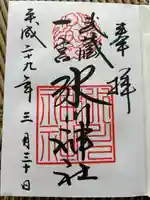 奉拝
武蔵
一宮
氷川神社
平成二十九年三月三十日